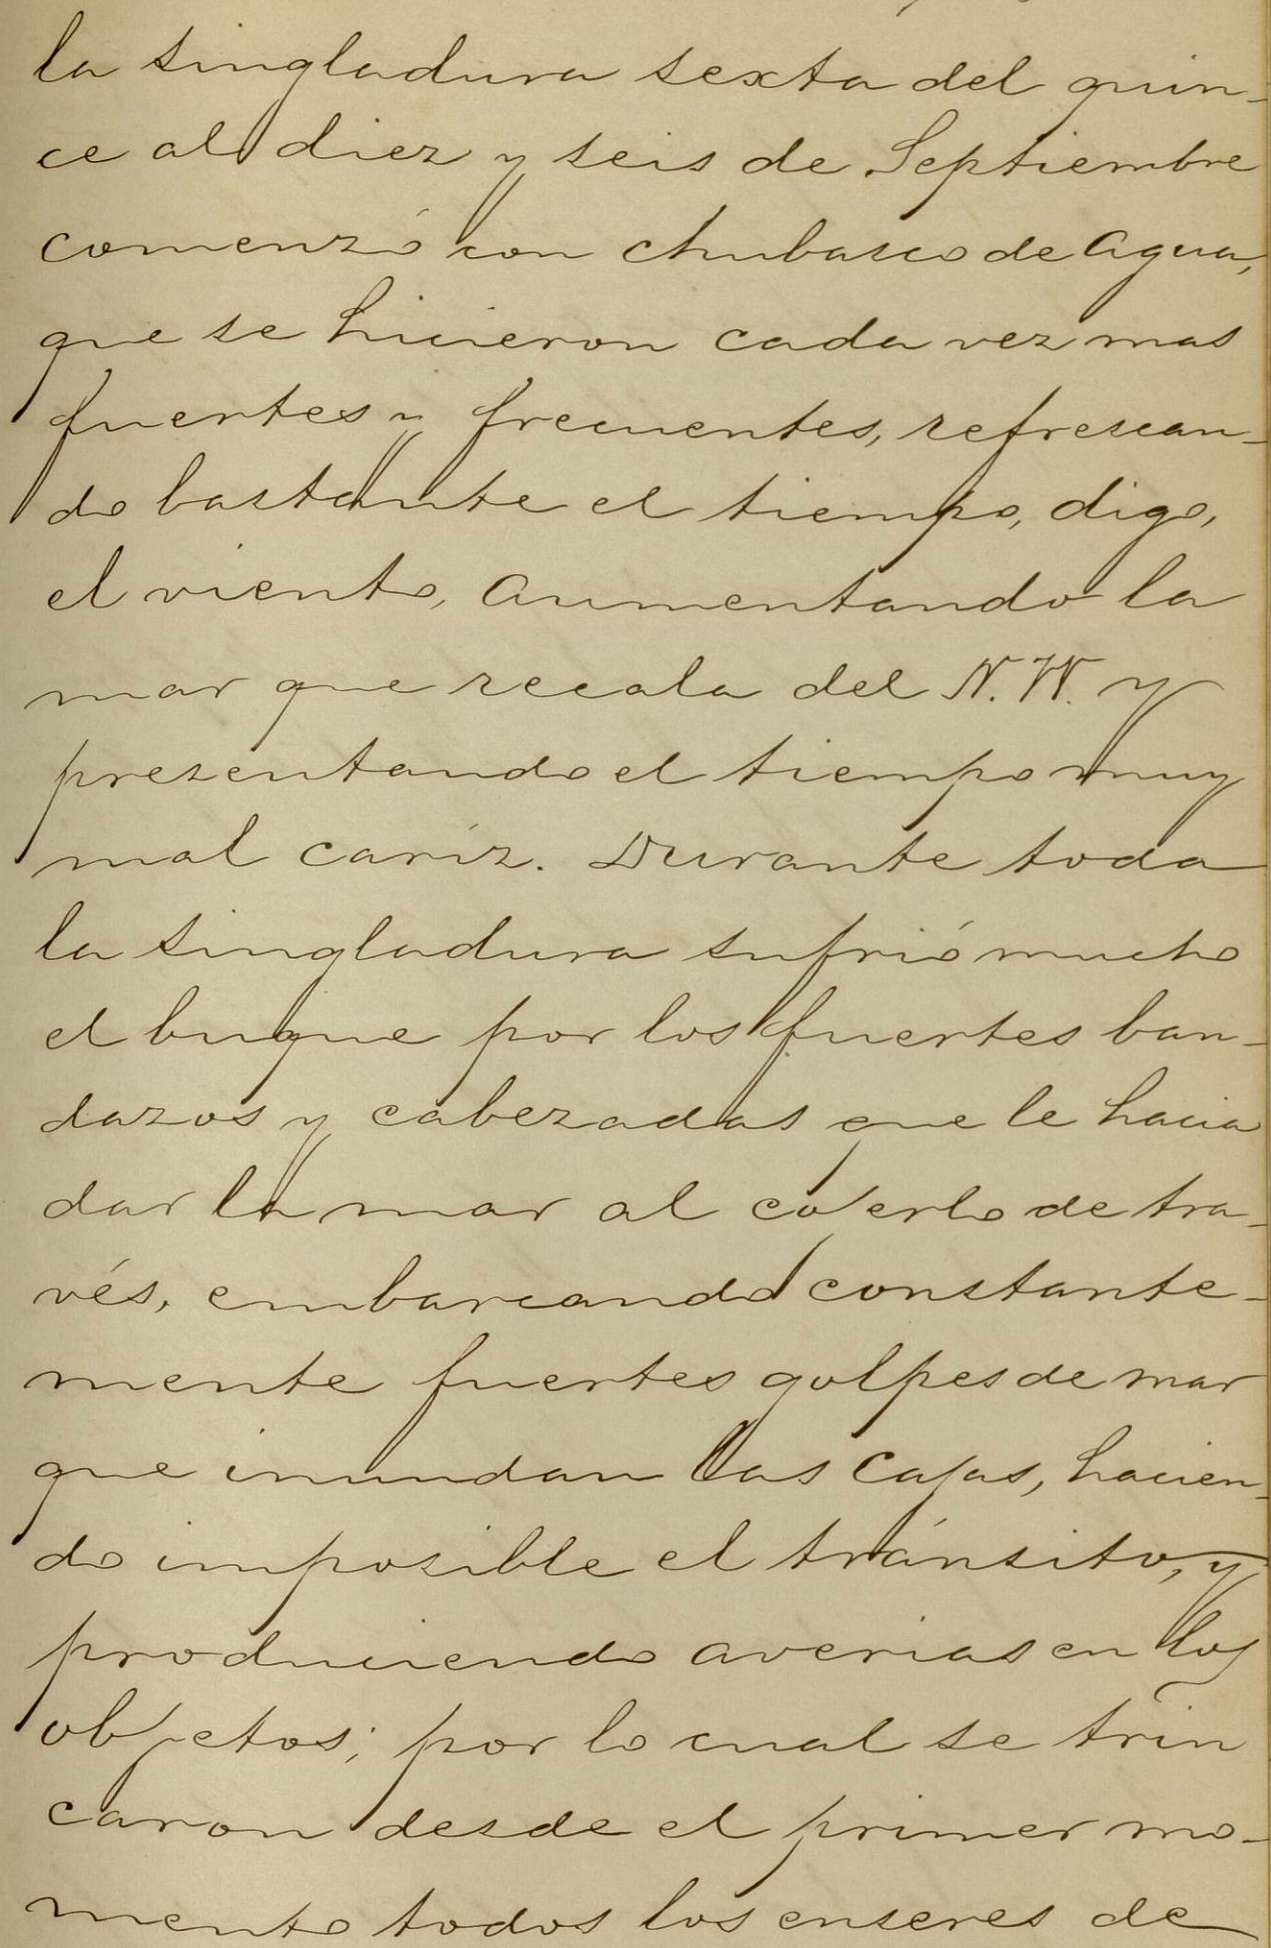 la singladura sexta del quin-
ce al diez y seis de Septiembre
comenzó con chubasco de agua,
que se hicieron cada vez mas
fuertes y frecuentes, refrescan-
do bastante el tiempo, digo,
el viento, aumentando la
mar que recala del N.W. y
presentando el tiempo muy
mal caríz. Durante toda
la singladura sufrió mucho
el buque por los fuertes ban-
dazos y cabezadas que le hacia
dar la mar al cojerlo de tra-
vés, embarcando constante-
mente fuertes golpes de mar
que inundan las cajas, hacien-
do imposible el tránsito, y
produciendo averias en los
objetos; por lo cual se trin
caron desde el primer mo-
mento todos los enseres de